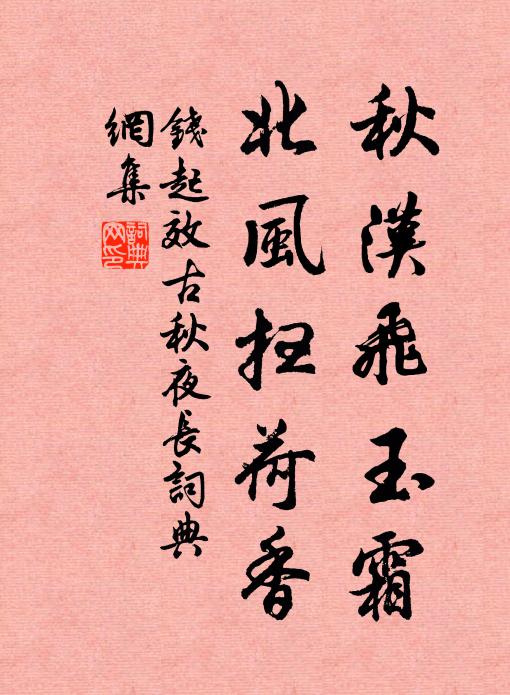 秋漢飛玉霜
北風掃荷香
錢起效古秋夜長詞典
網集
詞典網印